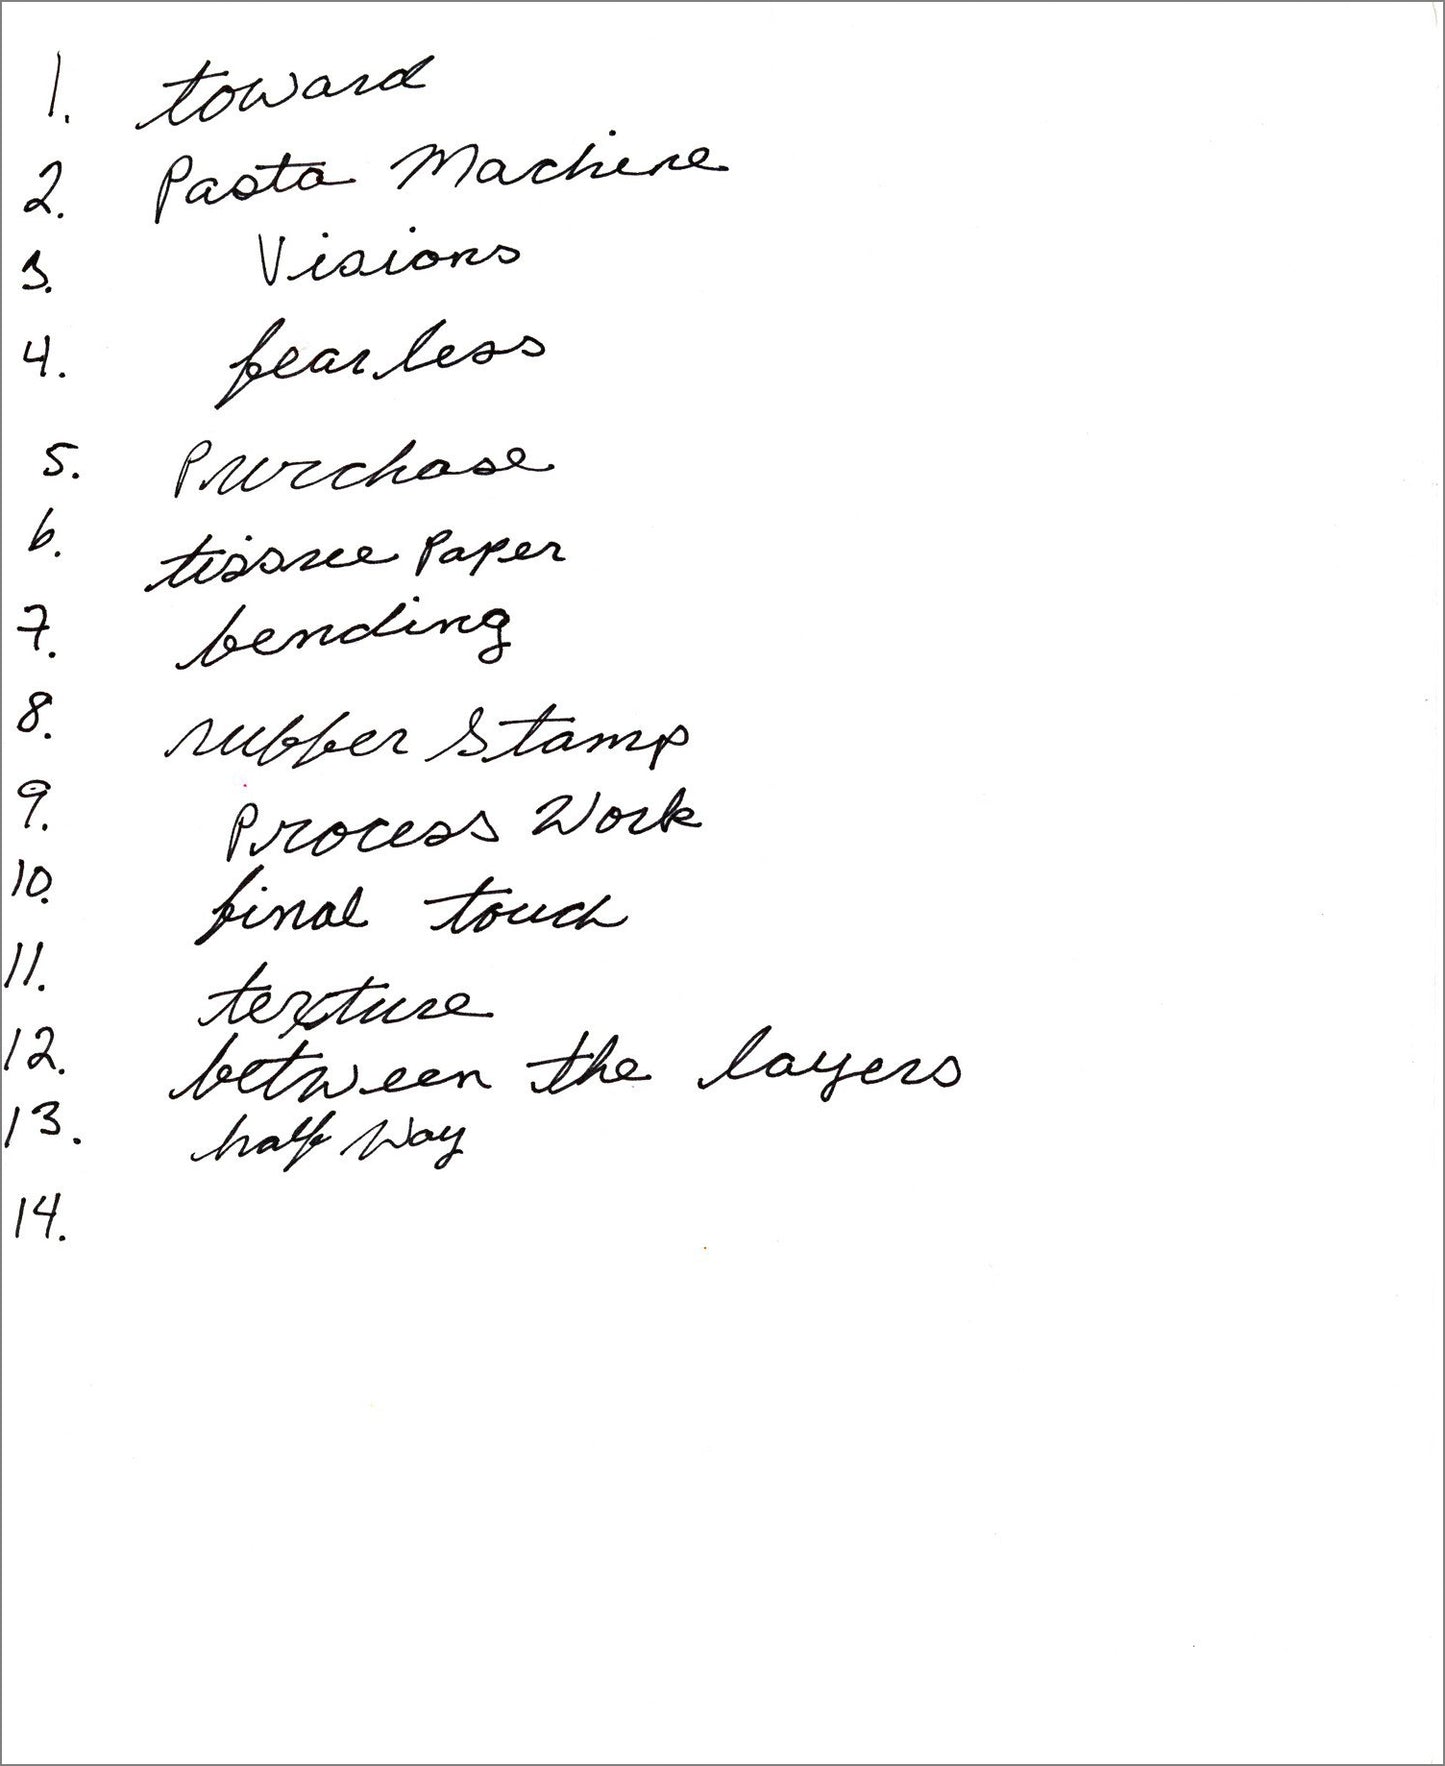 1. toward
2. Pasta Machine
3. Visions
4. fearless
5. Purchase
6. tissue Paper
7. bending
8. rubber Stamp
9. Process Work
10. final touch
11. texture
12. between the layers
13. half Way
14.